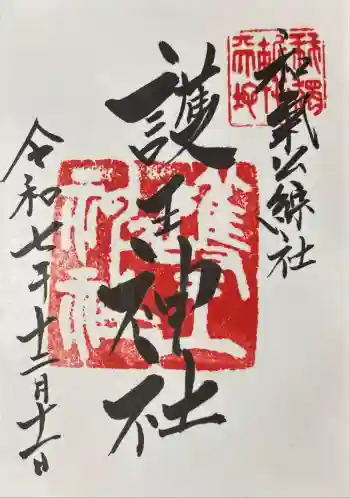 和氣公綜社
護王神社
令和七年十二月十一日
護王
神社